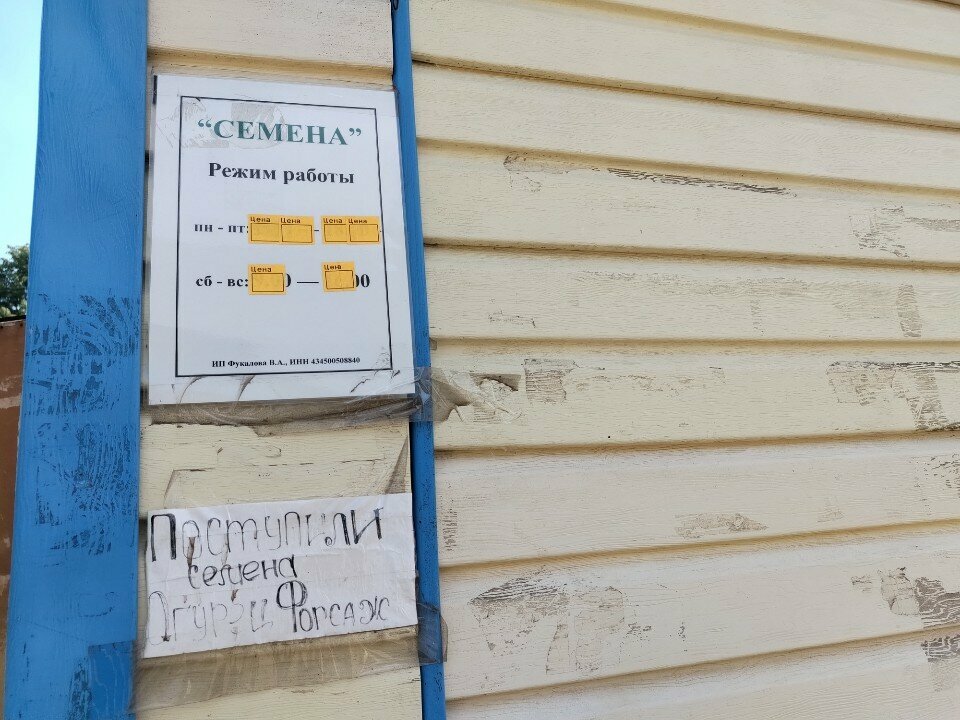 “СЕМЕНА”
Режим работы
пн - пт: Цена Цена - Цена Цена
сб - вс: Цена — Цена 00
ИП Фукалова В.А., ИНН 434500508840
Поступили
семена
Огурэц Форсаж